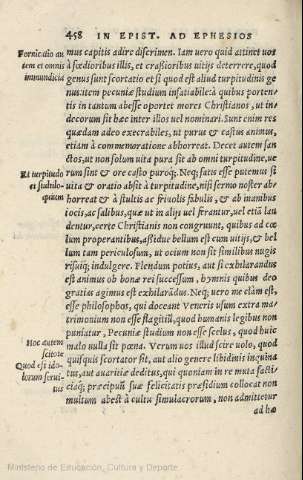 458 IN EPIST. AD EPHESIOS
Fornicatio au
tem et omnis
immundicia
mus capitis adire discrimen. Iam uero quid attinet uos
à fœdioribus illis, et crassioribus uitijs deterrere, quod
genus sunt scortatio et si quod est aliud turpitudinis ge
nus: item pecuniæ studium insatiabile: à quibus porten-
tis in tantum abesse oportet mores Christianos, ut in-
decorum sit hæc inter illos uel nominari. Sunt enim res
quædam adeo execrabiles, ut purus & castus animus,
etiam à commemoratione abhorreat. Decet autem san
ctos, ut non solum uita pura sit ab omni turpitudine, ue
Et turpitudo
et stultilo-
quium
rum sint & ore casto puroq́;. Neq; satis esse putemus si
uita & oratio absit à turpitudine, nisi sermo noster ab-
horreat & à stultis ac friuolis fabulis, & ab inanibus
iocis, ac salibus, quæ ut in alijs uel ferantur, uel etiā lau
dentur, certe Christianis non congruunt, quibus ad cœ
lum properantibus, assidue bellum est cum uitijs, & bel
lum tam periculosum, ut ocium non sit similibus nugis
risuiq́; indulgere. Plendum potius, aut si exhilarandus
est animus ob bonæ rei successum, hymnis quibus deo
gratias agimus est exhilarādus. Neq; uero me clàm est,
esse philosophos, qui doceant Veneris usum extra ma
trimonium non esse flagitiū, quod humanis legibus non
puniatur, Pecuniæ studium non esse scelus, quod huic
Hoc autem
scitote
Quod est ido-
lorum serui-
tus
malo nulla sit pœna. Verum uos illud scire uolo, quod
quisquis scortator sit, aut alio genere libidinis inquina
tur, aut auaritiæ deditus, qui quoniam in re muta factí-
ciaq́; præcipuū suæ felicitatis præsidium collocat non
multum abest à cultu simulacrorum, non admittetur
ad hæ
Ministerio de Educación, Cultura y Deporte